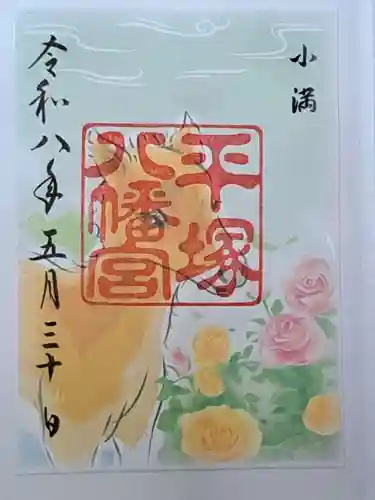 小満
平塚
八幡宮
令和八年五月三十日